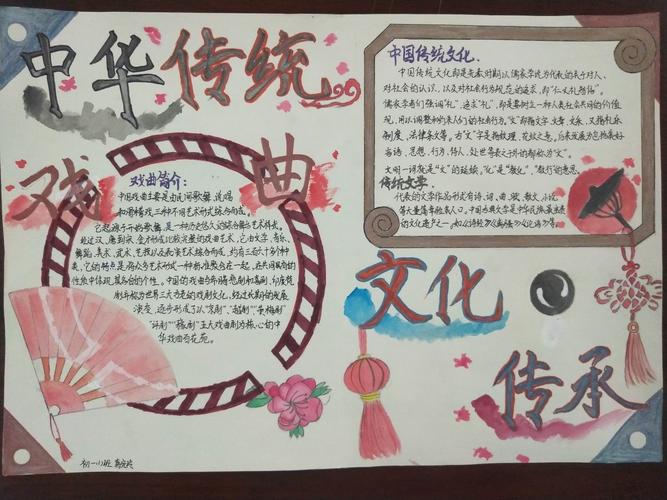 中华传统
戏曲
戏曲简介:
中国戏曲主要是由民间歌舞、说唱
和滑稽戏三种不同艺术形式综合而成。
它起源于原始歌舞,是一种历史悠久的综合舞台艺术样式。
经过汉、唐到宋、金才形成比较完整的戏曲艺术,它由文学、音乐、
舞蹈、美术、武术、杂技以及表演艺术综合而成,约有三百六十多个种
类。它的特点是将众多艺术形式以一种标准聚合在一起,在共同具有的
性质中体现其各自的个性。中国的戏曲与希腊悲剧和喜剧、印度梵
剧并称为世界三大古老的戏剧文化,经过长期的发展
演变,逐步形成了以“京剧”“越剧”“黄梅戏”
“评剧”“豫剧”五大戏曲剧种为核心的中
华戏曲百花苑。
中国传统文化.
中国传统文化即是先秦时期以儒家学说为代表的关于对人、
对社会的认识,以及对社会行为规范的追求,即“仁义礼智信”。
儒家学者们强调“礼”,追求“礼”,即是要树立一种人类社会共同的价值
观,用以调整和约束人们的社会行为。“文”即指文字、文章、文采,又指礼乐
制度、法律条文等。古“文”字是指纹理、花纹之意。后来发展为包括美好
言语、思想、行为、待人、处世等表之于外的都称为“文”。
文明一词就是“文”的延续,“化”是“教化”、“教行”的意思。
传统文学
代表的文学作品形式有诗、词、曲、赋、散文、小说
文化
传承
初一(1)班